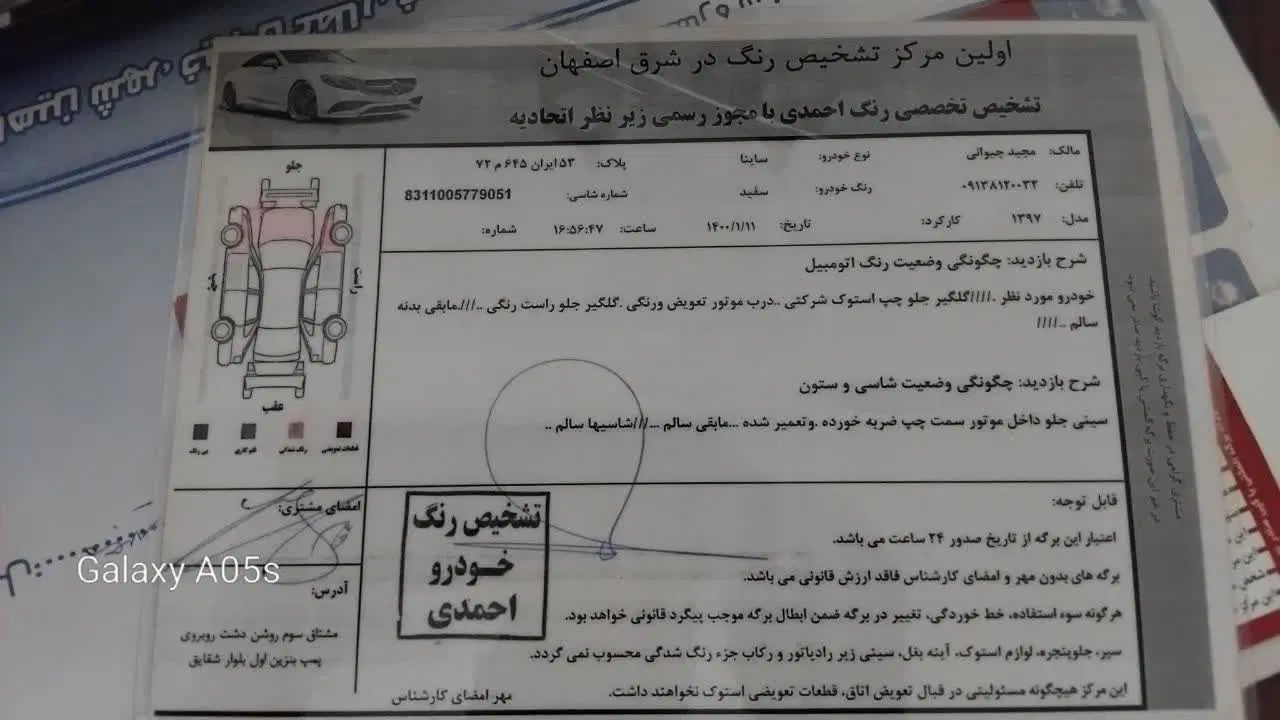 اولین مرکز تشخیص رنگ در شرق اصفهان
تشخیص تخصصی رنگ احمدی با مجوز رسمی زیر نظر اتحادیه
مالک: مجید جیوانی نوع خودرو: ساینا پلاک: ۵۳ ایران ۶۴۵ م ۷۲
تلفن: ۰۹۱۳۸۱۲۰۰۳۲ رنگ خودرو: سفید شماره شاسی: 8311005779051
مدل: ۱۳۹۷ کارکرد: تاریخ: ۱۴۰۰/۱/۱۱ ساعت: ۱۶:۵۶:۴۷ شماره:
جلو
راست
چپ
عقب
قطعات تعویضی رنگ شدگی قلم کاری بی رنگ
شرح بازدید: چگونگی وضعیت رنگ اتومبیل
خودرو مورد نظر .////گلگیر جلو چپ استوک شرکتی ..درب موتور تعویض ورنگی .گلگیر جلو راست رنگی ..///.مابقی بدنه
سالم ..////
شرح بازدید: چگونگی وضعیت شاسی و ستون
سینی جلو داخل موتور سمت چپ ضربه خورده .وتعمیر شده ...مابقی سالم ...///شاسیها سالم ..
قابل توجه:
اعتبار این برگه از تاریخ صدور ۲۴ ساعت می باشد.
برگه های بدون مهر و امضای کارشناس فاقد ارزش قانونی می باشد.
هرگونه سوء استفاده، خط خوردگی، تغییر در برگه ضمن ابطال برگه موجب پیگرد قانونی خواهد بود.
سپر، جلوپنجره، لوازم استوک، آینه بغل، سینی زیر رادیاتور و رکاب جزء رنگ شدگی محسوب نمی گردد.
این مرکز هیچگونه مسئولیتی در قبال تعویض اتاق، قطعات تعویضی استوک نخواهند داشت.
مهر امضای کارشناس
تشخیص رنگ
خودرو
احمدی
امضای مشتری:
آدرس:
مشتاق سوم روشن دشت روبروی
پمپ بنزین اول بلوار شقایق
Galaxy A05s